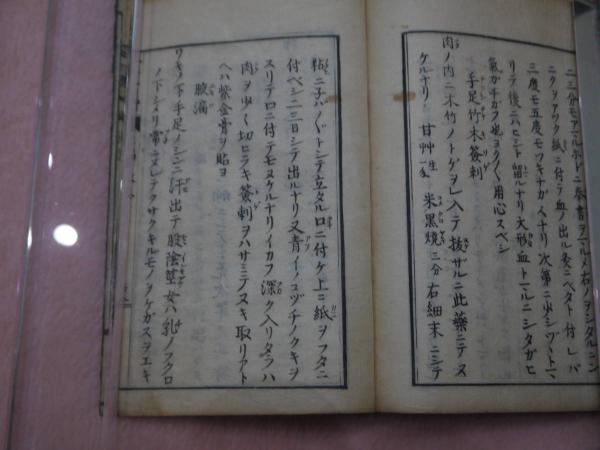 ニ三分モアマルホドニ奉書ヲマルメ右ノヲシタルニン
ニクヲアツク紙ニ付テ血ノ出ル灸ニベタト付レバ
三度モ五度モツキナガスナリ次第ニ少シヅツトマ
リテ後ニハヒシト留ルナリ大形血トマルニシタガヒ
氣ガチガフ也ヨクヨク用心スベシ
手足竹木簽刺
肉ノ内ニ木竹ノトゲヲレ入テ抜ザルニ此藥ニテヌ
ケルナリ 甘艸 生 一匁 米黒燒 三分右細末ニシテ
糊ニ子ハノバトシテ立タル口ニ付ケ上ニ紙ヲフタニ
付ベシ二三日シテ出ルナリ又青イノコヅチノクキヲ
スリテ口ニ付テモヌケルナリイカフ深ク入リタラハ
肉ヲ少ク切ヒラキ簽刺ヲハサミテヌキ取リアト
ヘハ紫金膏ヲ貼ヨ
腋漏
ワキノ下手足ノシンニ汗出テ股陰莖女ハ乳ノフクロ
ノ下シメリ常ニヌレテクサクキルモノヲケガスヲエキ